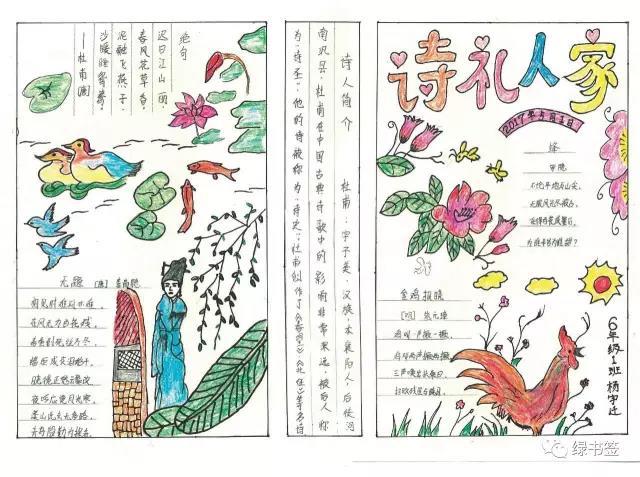 诗礼人家
2017年5月1日
蜂
不论平地与山尖，
无限风光尽被占。
金鸡报晓
三声唤出扶桑日，
扫败残星与晓月。
6年级1班杨宇迁
诗人简介
杜甫，字子美，汉族，本襄阳人，后徙河
南巩县。杜甫在中国古典诗歌中的影响非常深远，被后人称
为“诗圣”，他的诗被称为“诗史”。杜甫创作了《春望》《北征》等名诗
绝句
迟日江山丽，
春风花草香。
泥融飞燕子，
沙暖睡鸳鸯。
——杜甫[唐]
无题 [唐] 李商隐
相见时难别亦难，
东风无力百花残。
春蚕到死丝方尽，
蜡炬成灰泪始干。
晓镜但愁云鬓改，
夜吟应觉月光寒。
蓬山此去无多路，
青鸟殷勤为探看。
绿书签